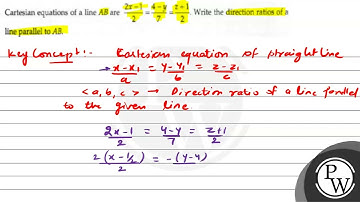 Cartesian equations of a line AB are (2x-1)/2 = (4-y)/7 = (z+1)/2. Write the direction ratios of a
line parallel to AB.
Key Concept:- Cartesian equation of straight line
x-x₁/a = y-y₁/b = z-z₁/c
<a,b,c> → Direction ratio of a line parallel
to the given line.
2x-1/2 = 4-y/7 = z+1/2
2(x-1/2)/2 = -(y-4)
PW